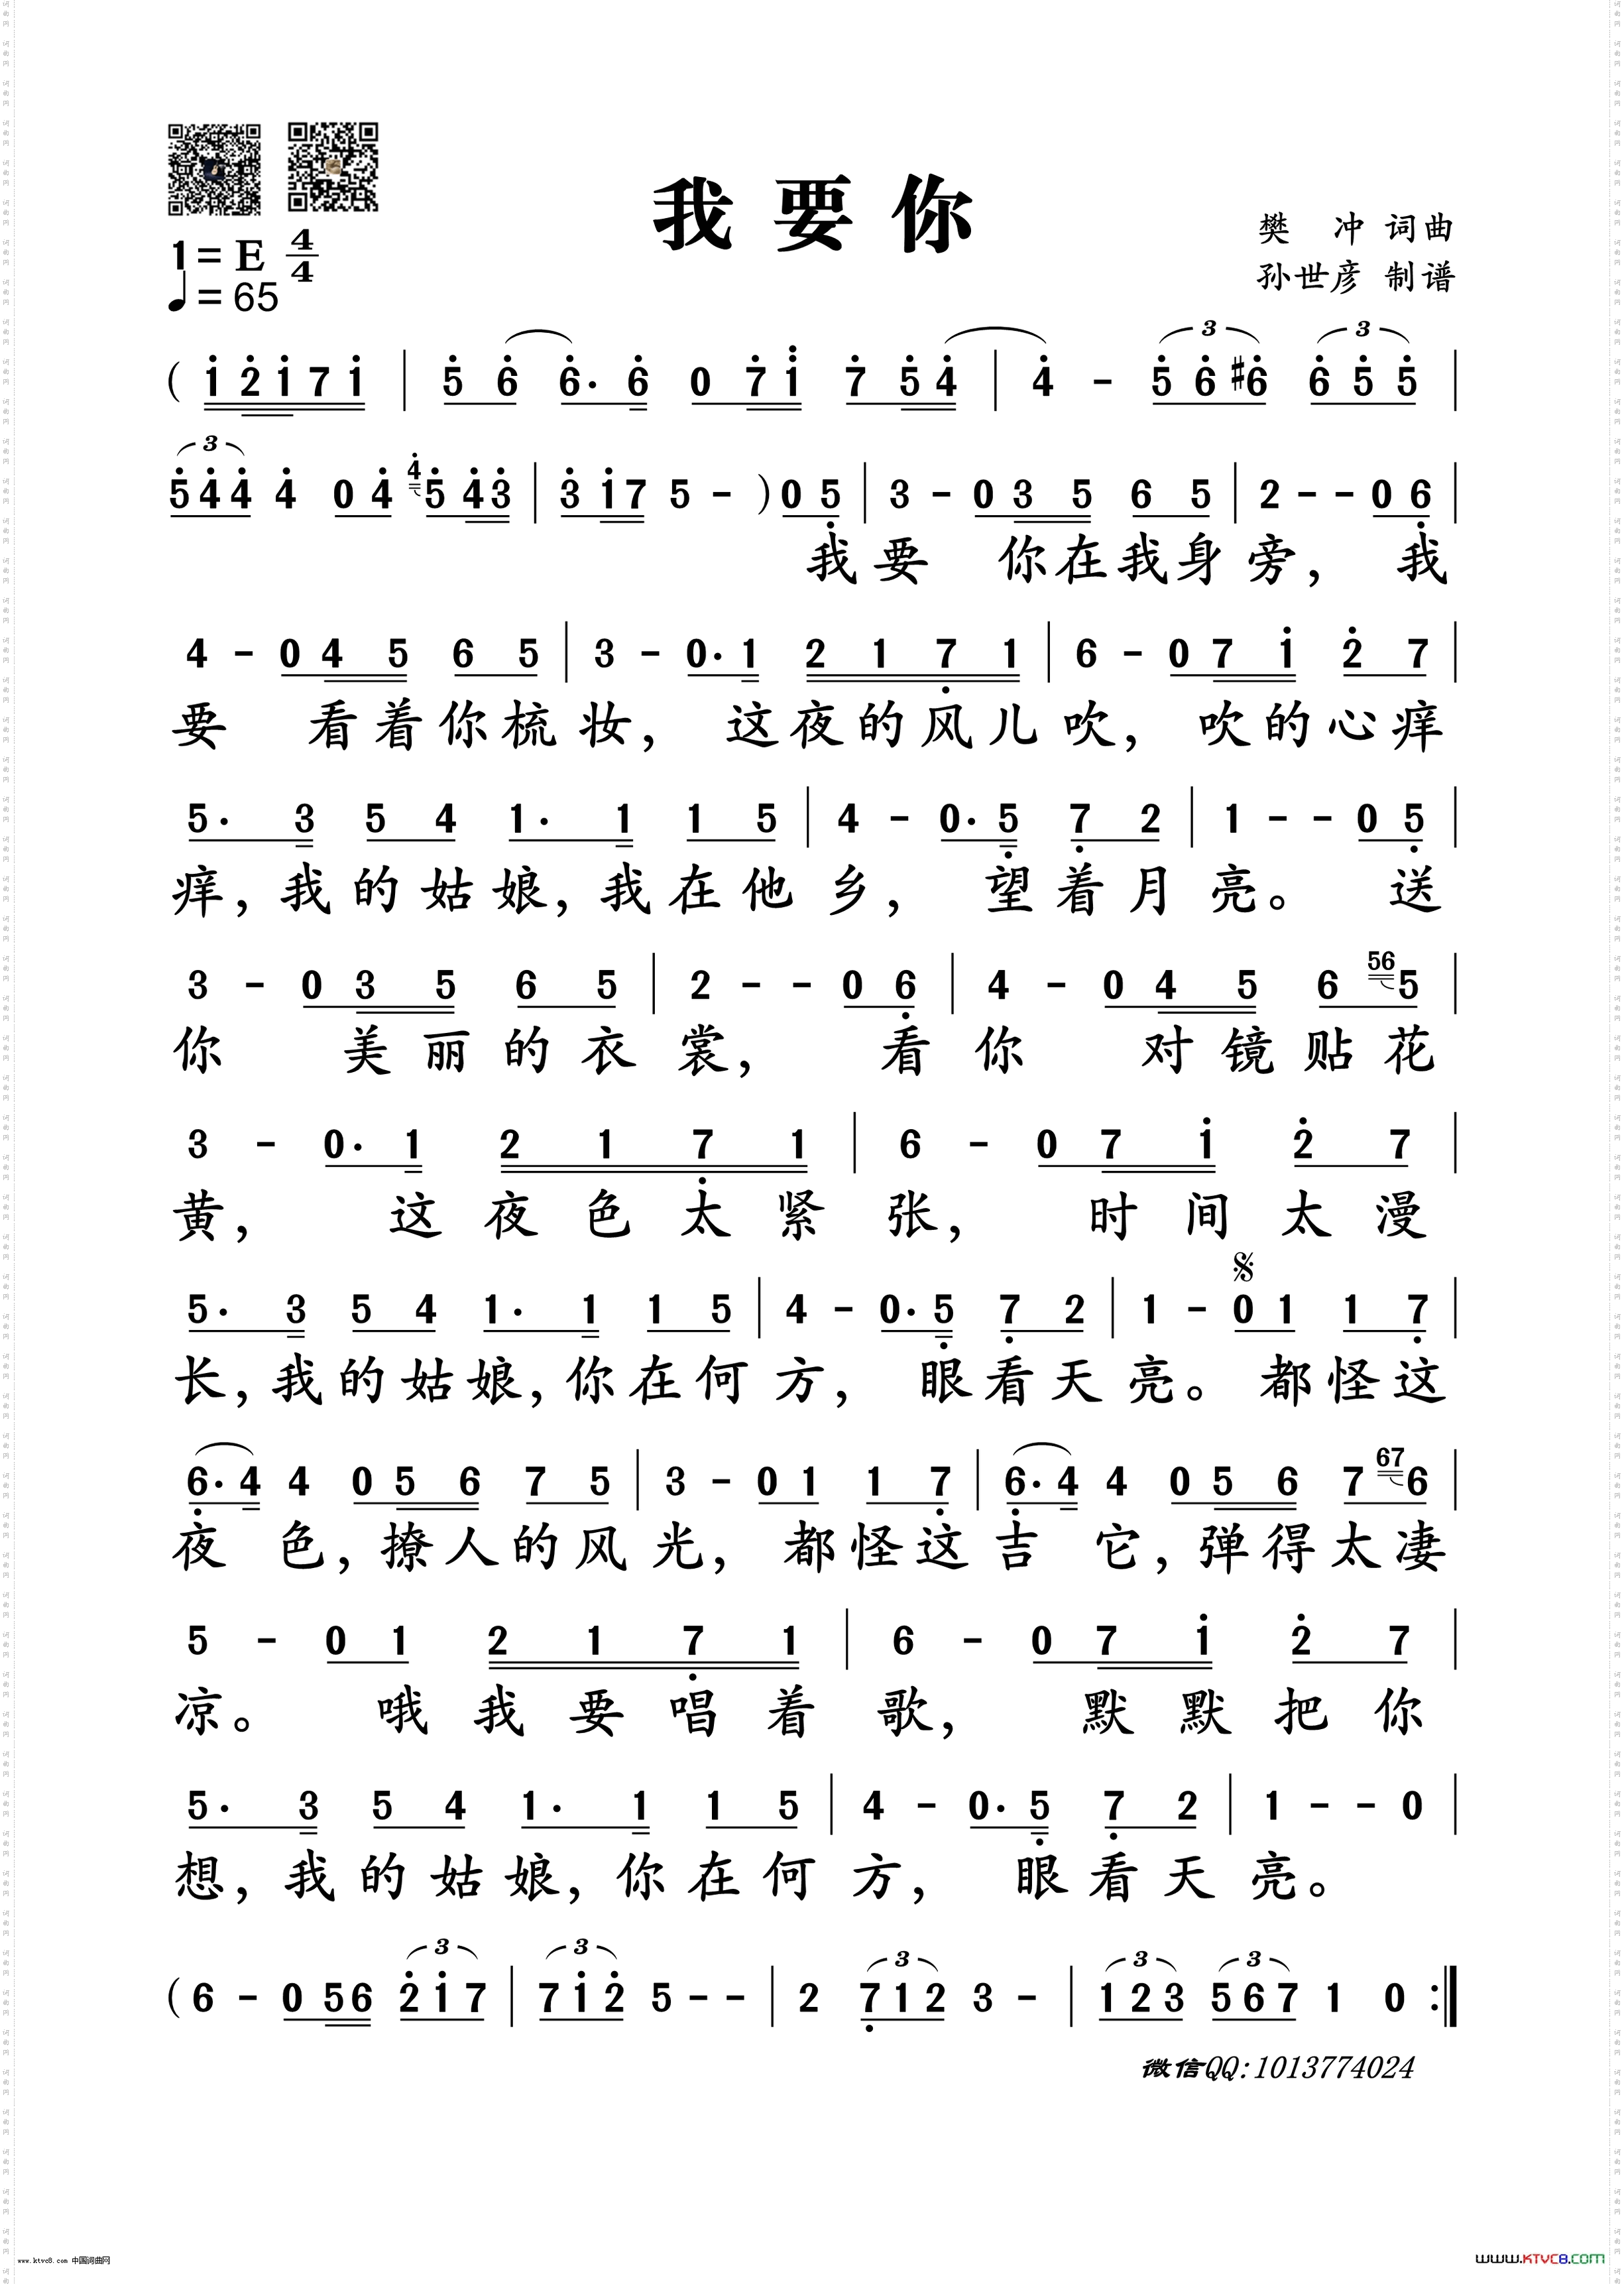 我要你
樊 冲 词曲
孙世彦 制谱
1=E 4/4
♩=65
( 1 2 1 7 1 | 5 6 6· 6 0 7 1 7 5 4 | 4 - 5 6 #6 6 5 5 |
5 4 4 4 0 4 4 5 4 3 | 3 1 7 5 - ) 0 5 | 3 - 0 3 5 6 5 | 2 - - 0 6 |
我要 你在我身旁， 我
4 - 0 4 5 6 5 | 3 - 0· 1 2 1 7 1 | 6 - 0 7 1 2 7 |
要 看着你梳妆， 这夜的风儿吹， 吹的心痒
5· 3 5 4 1· 1 1 5 | 4 - 0· 5 7 2 | 1 - - 0 5 |
痒，我的姑娘，我在他乡， 望着月亮。 送
3 - 0 3 5 6 5 | 2 - - 0 6 | 4 - 0 4 5 6 56 5 |
你 美丽的衣裳， 看你 对镜贴花
3 - 0· 1 2 1 7 1 | 6 - 0 7 1 2 7 |
黄， 这夜色太紧张， 时间太漫
5· 3 5 4 1· 1 1 5 | 4 - 0· 5 7 2 | 1 - 0 1 1 7 |
长，我的姑娘，你在何方， 眼看天亮。 都怪这
6· 4 4 0 5 6 7 5 | 3 - 0 1 1 7 | 6· 4 4 0 5 6 7 67 6 |
夜色，撩人的风光， 都怪这吉它，弹得太凄
5 - 0 1 2 1 7 1 | 6 - 0 7 1 2 7 |
凉。 哦我要唱着歌， 默默把你
5· 3 5 4 1· 1 1 5 | 4 - 0· 5 7 2 | 1 - - 0 |
想，我的姑娘，你在何方， 眼看天亮。
( 6 - 0 5 6 2 1 7 | 7 1 2 5 - - | 2 7 1 2 3 - | 1 2 3 5 6 7 1 0 :|
微信QQ:1013774024
www.ktvc8.com 中国词曲网
WWW.KTVC8.COM